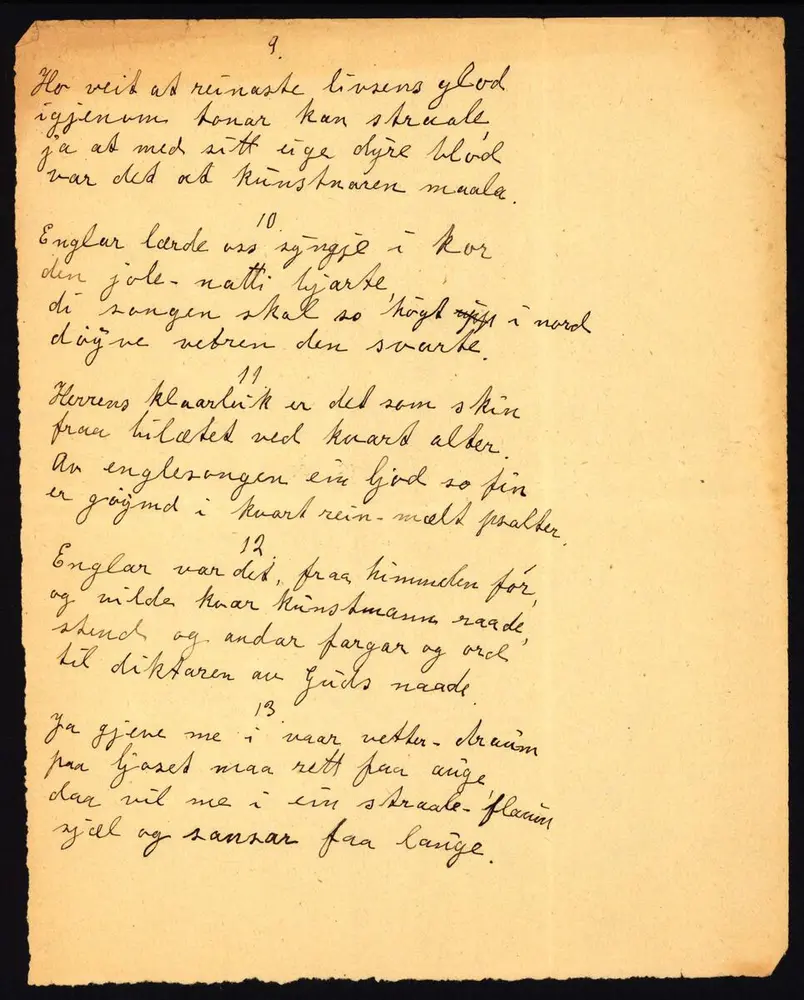 9.
Ho veit at reinaste livsens glod
igjenom tonar kan straale,
ja at med sitt eige dyre blod
var det at kunstnaren maala.
10
Englar lærde oss syngje i kor
den jole-natti bjarte,
di songen skal so högt i nord
döyve vetren den svarte.
11
Herrens klaarleik er det som skin
fraa bilætet ved kvart alter.
Av englesongen ein ljod so fin
er göymd i kvart rein-mælt psalter.
12.
Englar var det, fraa himmelen för,
og vilde kvar kunstmann raade,
stend og andar fargar og ord
til diktaren av Guds naade.
13
Ja gjeve me i vaar vetter-draum
paa ljoset maa rett faa auge,
daa vil me i ein straale-flaum
sjæl og sansar faa lauge.